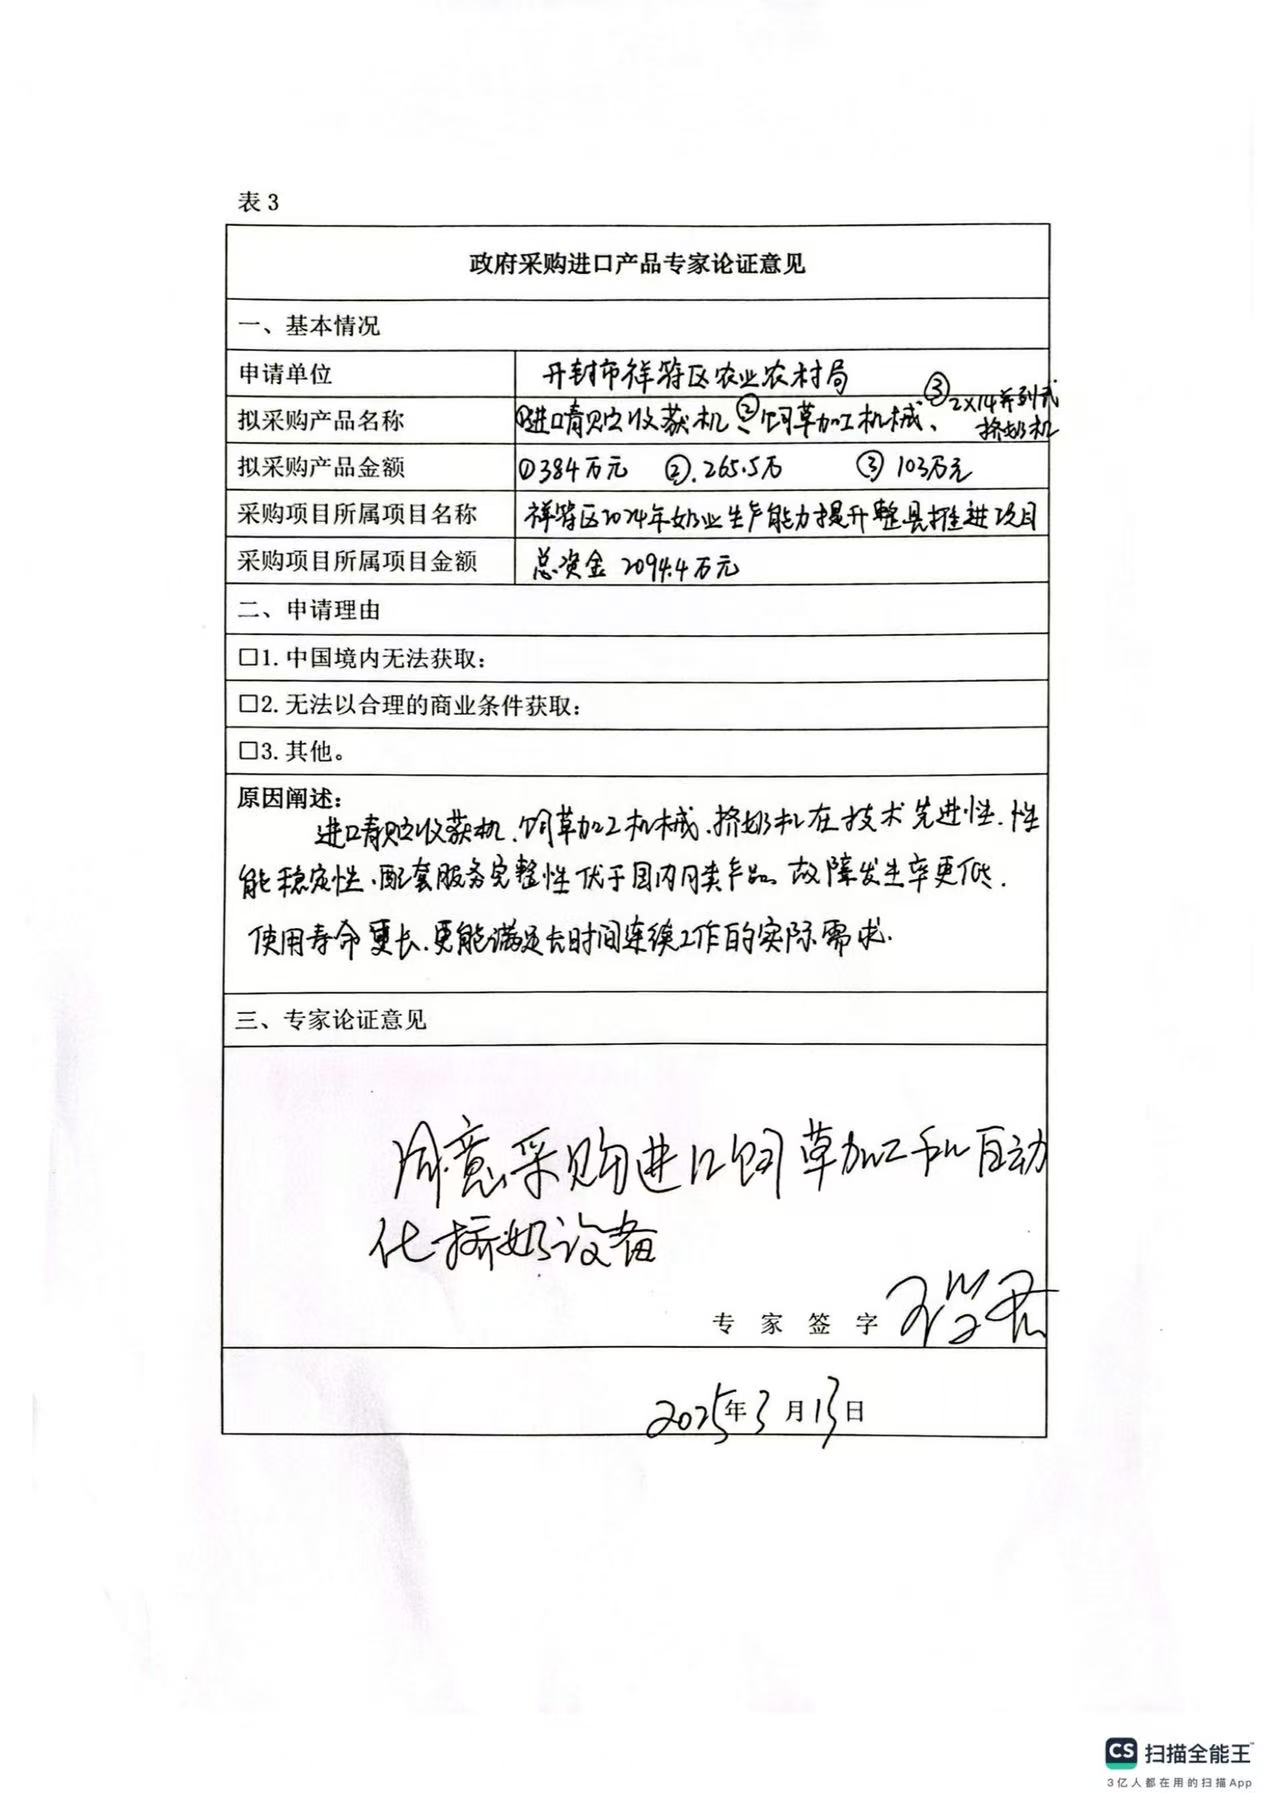 表 3
政府采购进口产品专家论证意见
一、基本情况
申请单位 开封市祥符区农业农村局
拟采购产品名称 ①进口青贮收获机、②饲草加工机械、③2×14并列式
挤奶机
拟采购产品金额 ①384万元 ②.265.5万 ③103万元
采购项目所属项目名称 祥符区2024年奶业生产能力提升整县推进项目
采购项目所属项目金额 总资金 2094.4万元
二、申请理由
□1. 中国境内无法获取：
□2. 无法以合理的商业条件获取：
□3. 其他。
原因阐述：
进口青贮收获机、饲草加工机械、挤奶机在技术先进性、性
能稳定性、配套服务完整性优于国内同类产品。故障发生率更低、
使用寿命更长、更能满足长时间连续工作的实际需求.
三、专家论证意见
同意采购进口饲草加工和自动
化挤奶设备
专 家 签 字
2025年3月13日
CS 扫描全能王
3亿人都在用的扫描App